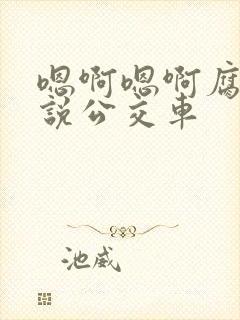 嗯啊嗯啊腐
說公交車
池威